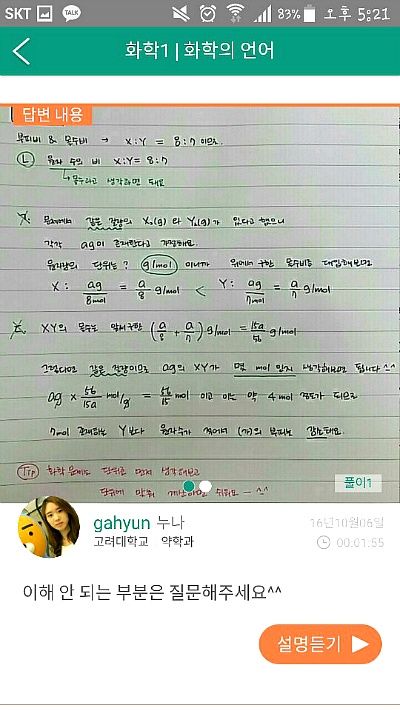 SKT TALK 83% 오후 5:21
화학1 | 화학의 언어
답변 내용
몰피비 & 몰수비 → X:Y = 8:7 이므로.
Ⓛ 원자 수의 비 X:Y = 8:7
↳ 몰수라고 생각하면 돼요
ㄱ. 문제에서 같은 질량의 X₂(g) 와 Y₂(g) 가 있다고 했으니
각각 ag이 존재한다고 가정해요.
원자량의 단위는? g/mol 이니까 위에서 구한 몰수비를 대입해보면
X : ag/8mol = a/8 g/mol < Y : ag/7mol = a/7 g/mol
ㄷ. XY의 몰수는 앞서 구한 (a/8 + a/7) g/mol = 15a/56 g/mol
그렇다면 같은 질량이므로 ag의 XY가 몇 mol 인지 생각해보면 됩니다 ^^
ag × 56/15a mol/g = 56/15 mol 이고 이는 약 4mol 정도가 되므로
7mol 존재하는 Y보다 원자수가 적어서 (가)의 부피는 감소해요.
Tip 화학 문제는 단위를 먼저 생각해보고
단위에 맞춰 계산하면 쉬워요 ~ ^^
풀이1
gahyun 누나
16년10월06일
고려대학교 약학과
00:01:55
이해 안 되는 부분은 질문해주세요^^
설명듣기